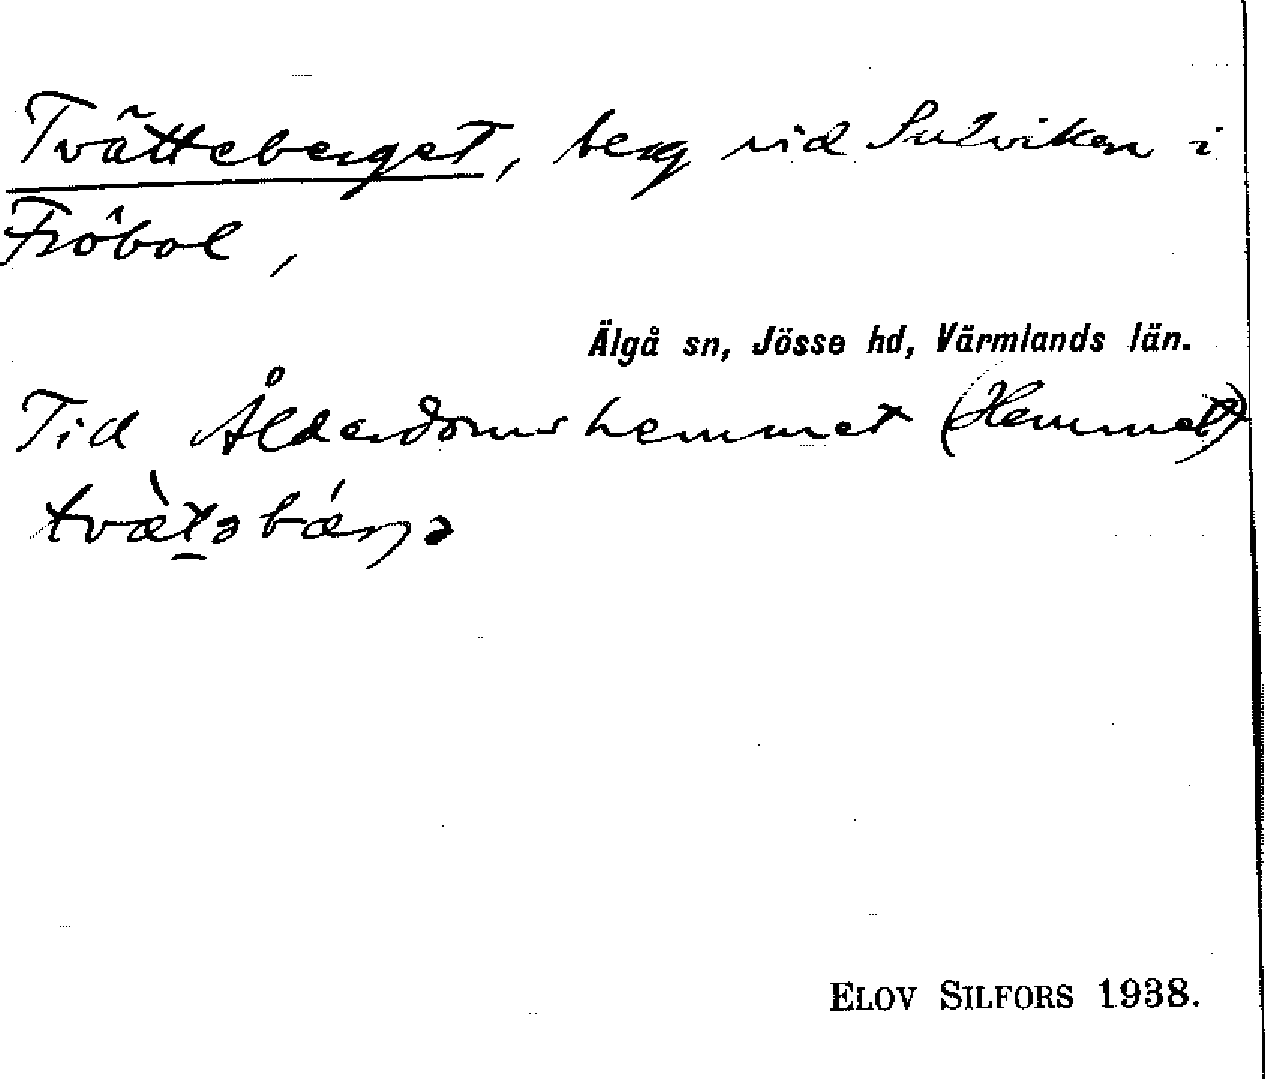 Tvätteberget, berg vid Sulviken i
Fröbol,
Älgå sn, Jösse hd, Värmlands län.
Till Ålderdomshemmet (Hemmet)
tvæ̀t̠ə bǽrjə
ELOV SILFORS 1938.